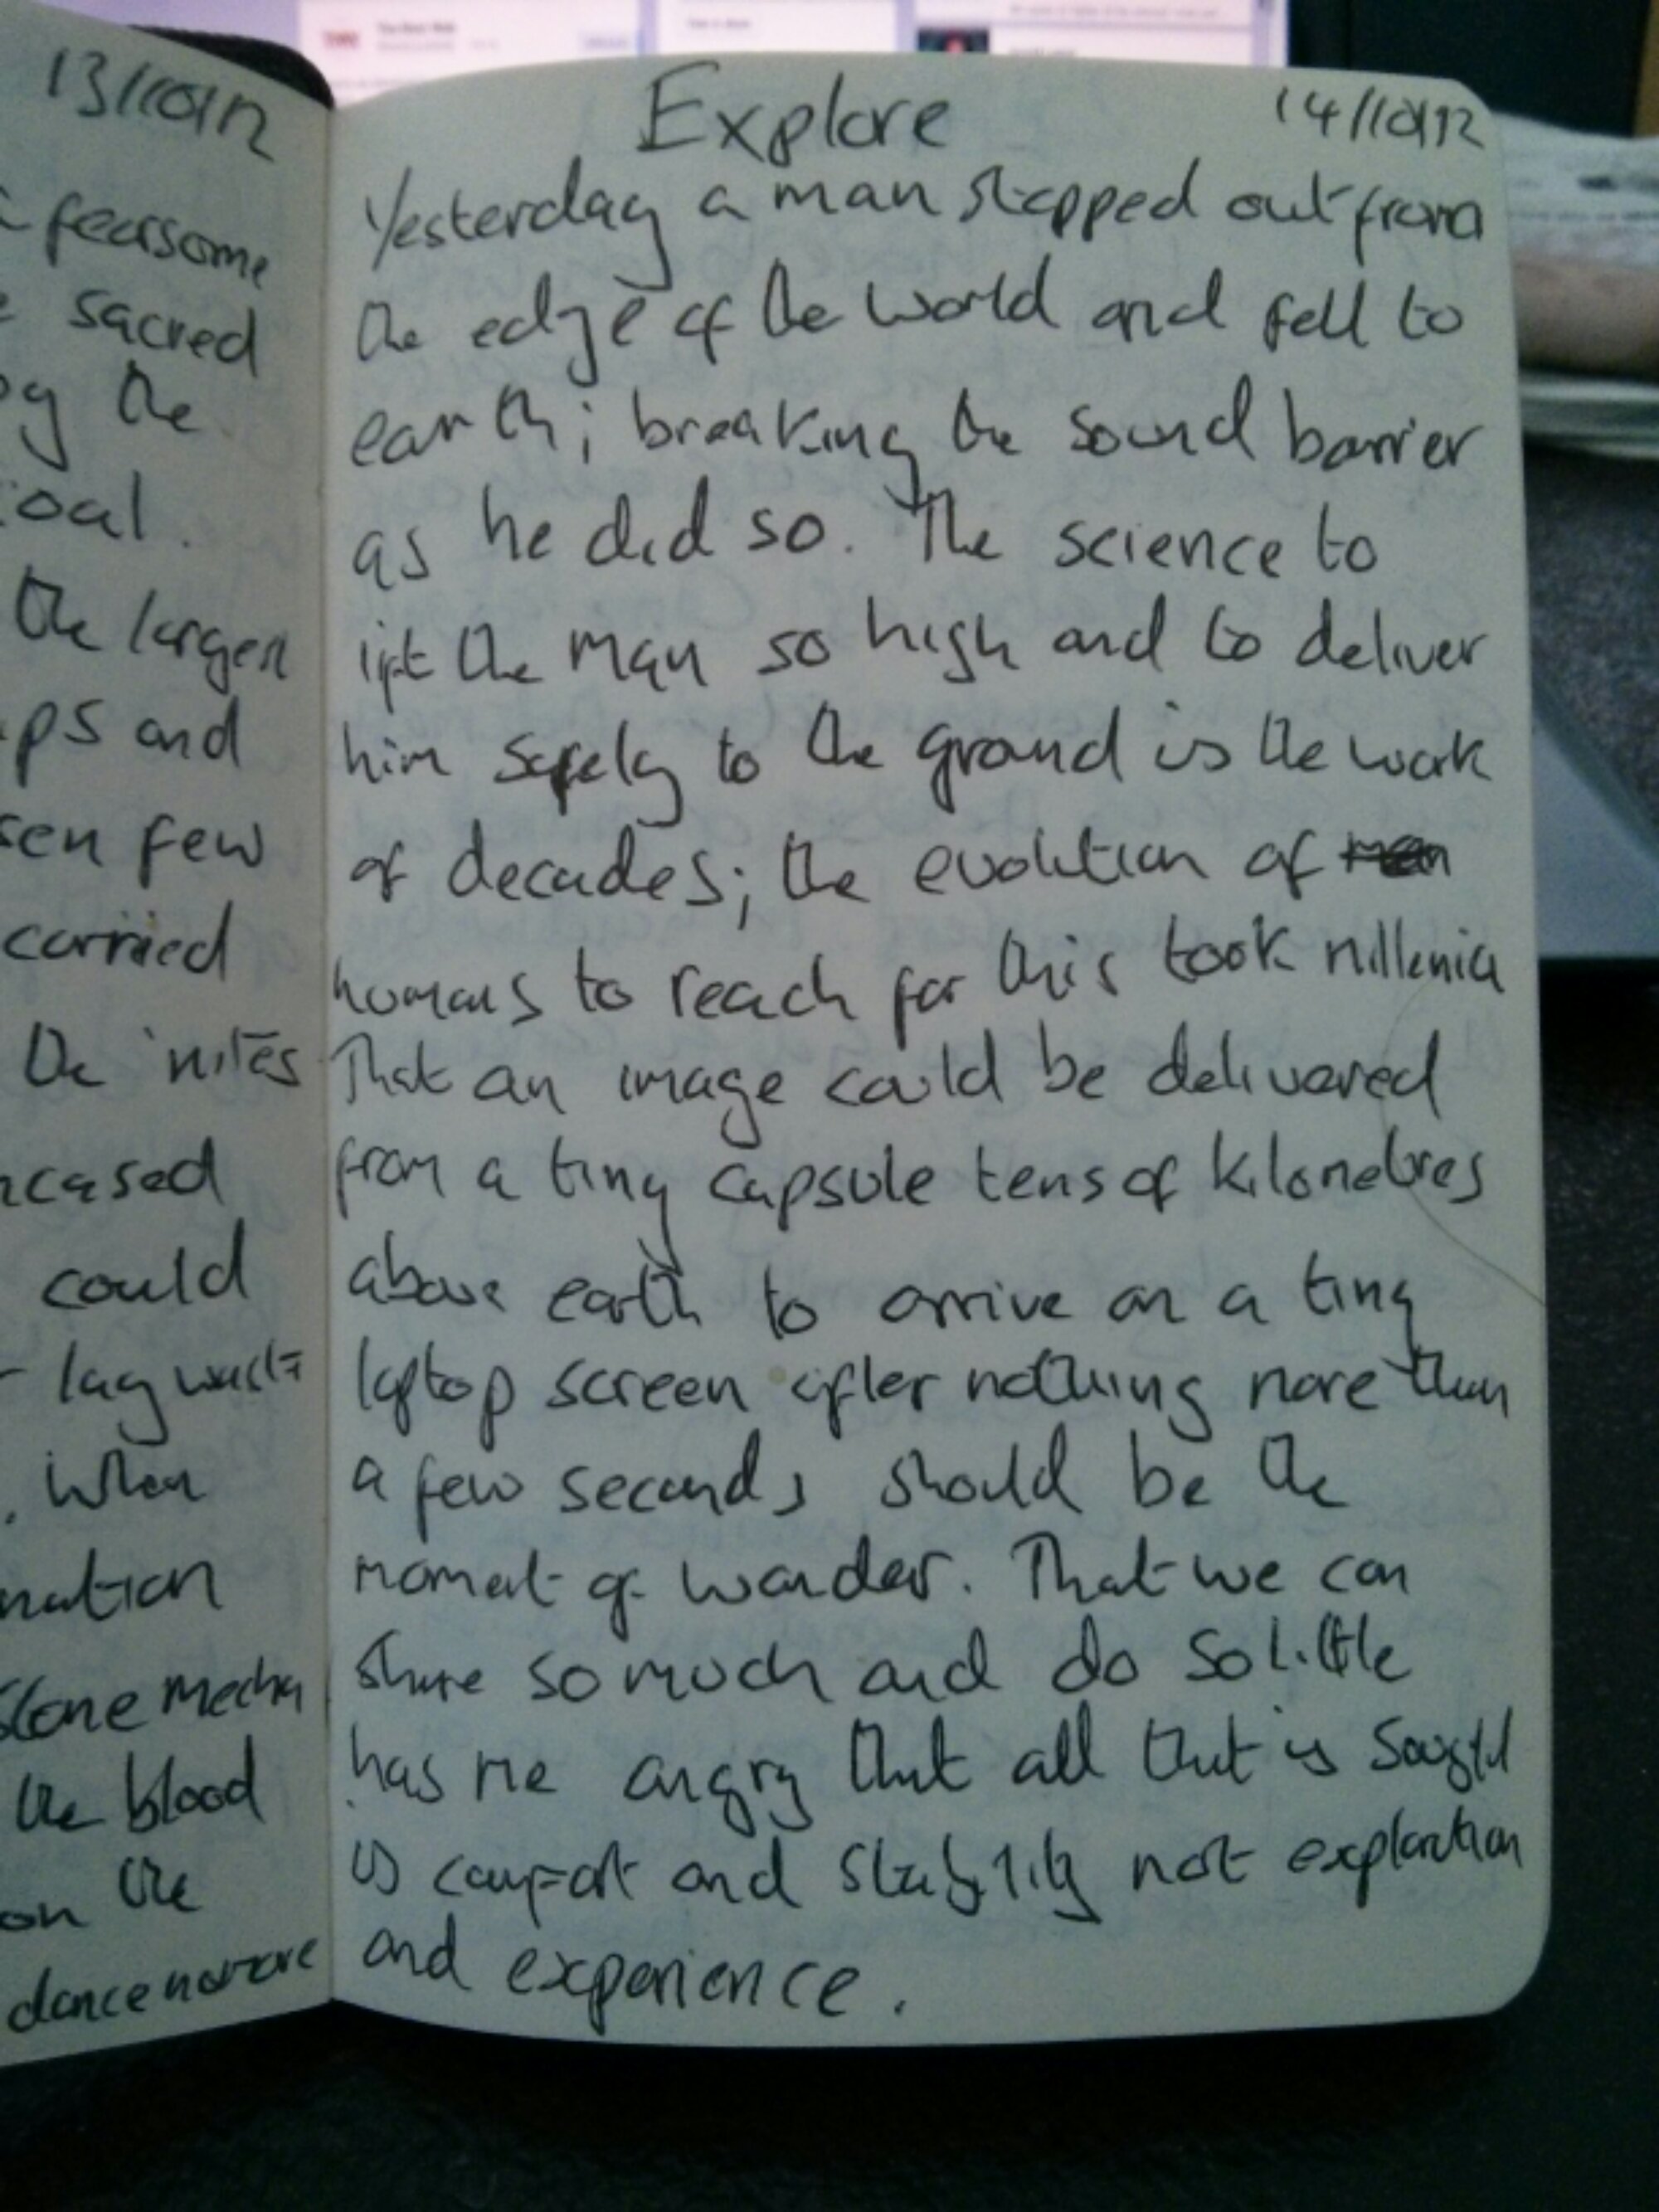 13/10/12
fearsome
sacred
the
oal.
the largest
ps and
sen few
carried
the
ncased
could
lay waste
. When
nation
Stone mecha
the blood
on the
dance no more
Explore 14/10/12
Yesterday a man stepped out from
the edge of the world and fell to
earth; breaking the sound barrier
as he did so. The science to
lift the man so high and to deliver
him safely to the ground is the work
of decades; the evolution of men
humans to reach for this took millenia
That an image could be delivered
from a tiny capsule tens of kilometres
above earth to arrive on a tiny
laptop screen after nothing more than
a few seconds should be the
moment of wonder. That we can
share so much and do so little
has me angry that all that is sought
is comfort and stability not exploration
and experience.